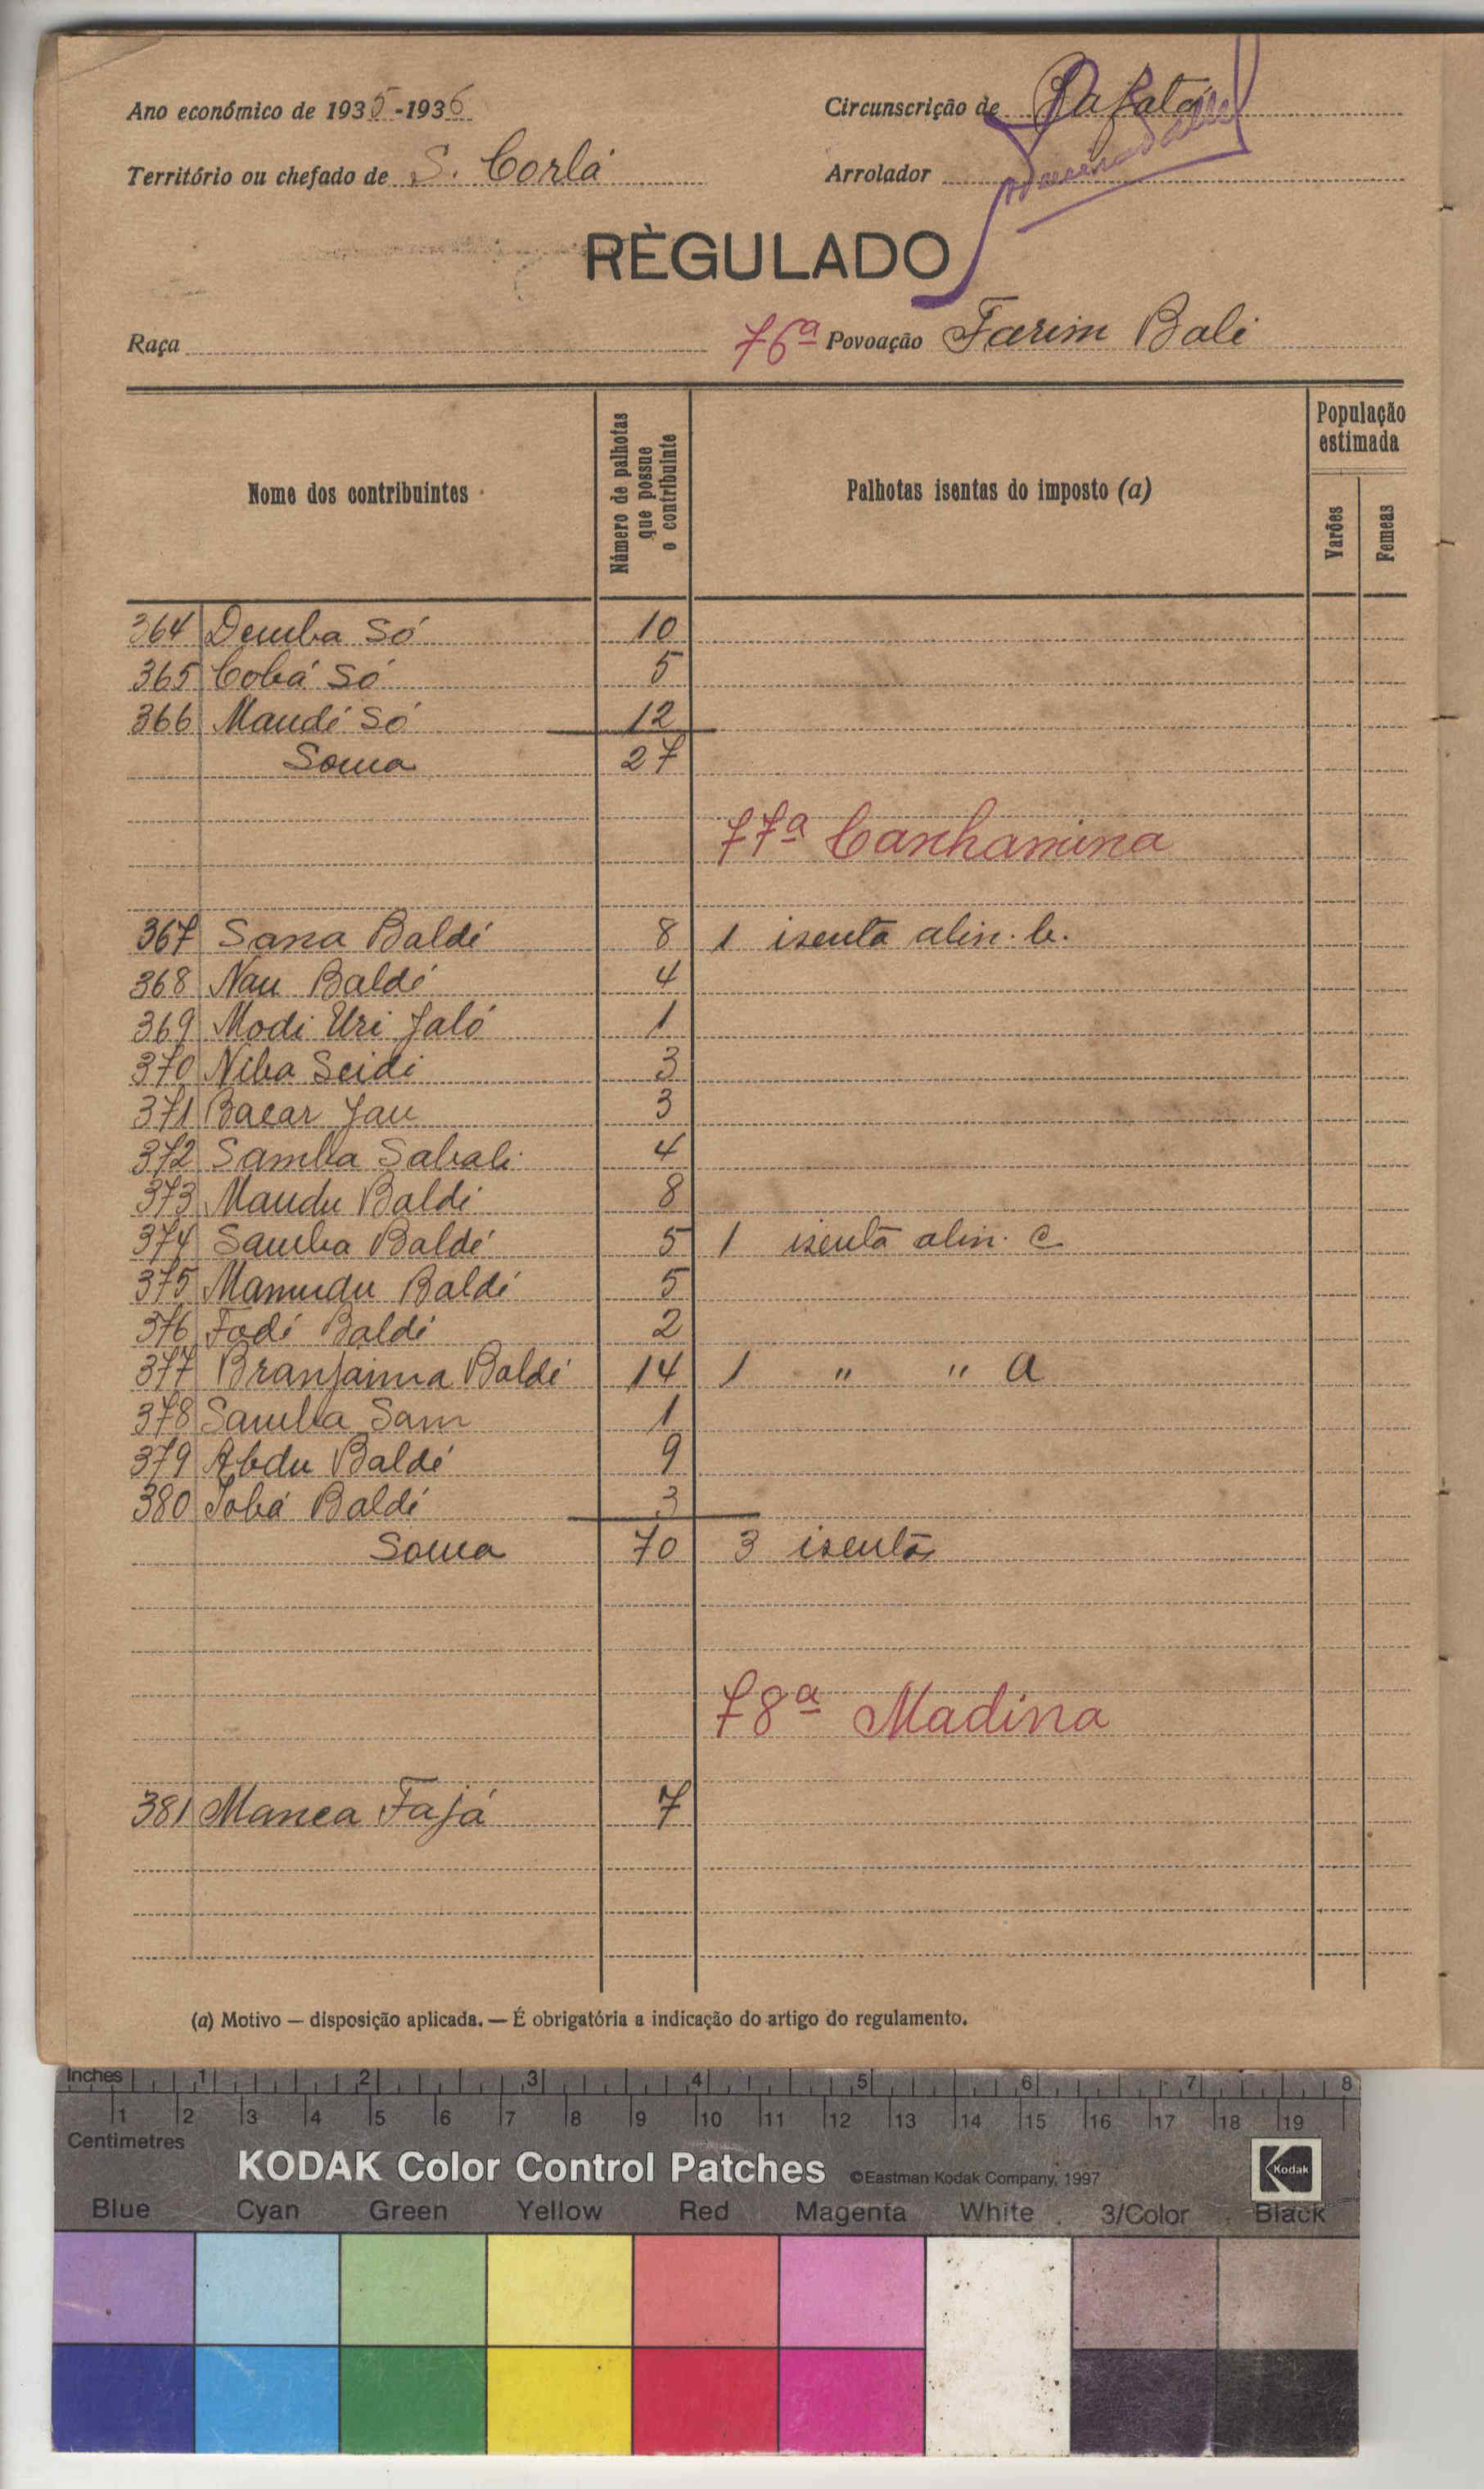 Ano económico de 1935-1936
Circunscrição de Bafatá
Território ou chefado de S. Corlá
Arrolador
RÈGULADO
Raça
76ª Povoação Farim Bali
Nome dos contribuintes
Número de palhotas que possue o contribuinte
Palhotas isentas do imposto (a)
População estimada
Varões
Femeas
364 Demba Só 10
365 Cobá Só 5
366 Maudé Só 12
Soma 27
77ª Canhamina
367 Sana Baldé 8 1 isenta alin. b.
368 Nau Baldé 4
369 Modi Uri Jaló 1
370 Niba Seidi 3
371 Bacar Jau 3
372 Samba Sabali 4
373 Maudu Baldé 8
374 Samba Baldé 5 1 isenta alin. c
375 Mamudu Baldé 5
376 Fodé Baldé 2
377 Branjaima Baldé 14 1 " " a
378 Samba Sam 1
379 Abdu Baldé 9
380 Iobá Baldé 3
Soma 70 3 isentas
78ª Madina
381 Manca Fajá 7
(a) Motivo — disposição aplicada. — É obrigatória a indicação do artigo do regulamento.
Inches 1 2 3 4 5 6 7 8
1 2 3 4 5 6 7 8 9 10 11 12 13 14 15 16 17 18 19
Centimetres
KODAK Color Control Patches ©Eastman Kodak Company, 1997 Kodak
Blue Cyan Green Yellow Red Magenta White 3/Color Black